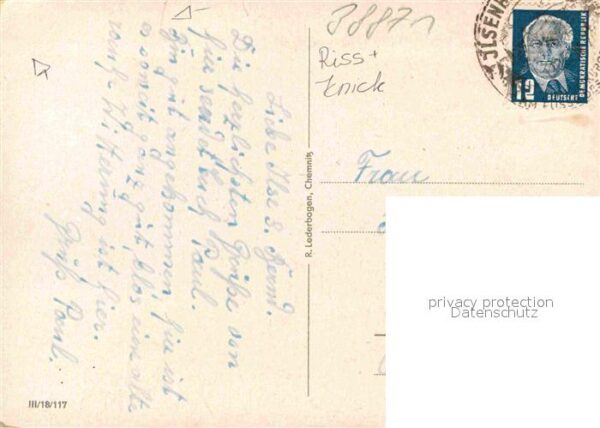 3887n
Riss +
Knick
ILSENB
DEUTSCHE DEMOKRATISCHE REPUBLIK
12
Frau
R. Lederbogen, Chemnitz
privacy protection
Datenschutz
Liebe Ilse &
Die herzlichsten Grüße von
hier sendet Euch Paul.
Bin gut angekommen, hier ist
es soweit ganz gut, blos eine alte
Witterung ist hier.
Gruß Paul.
III/18/117